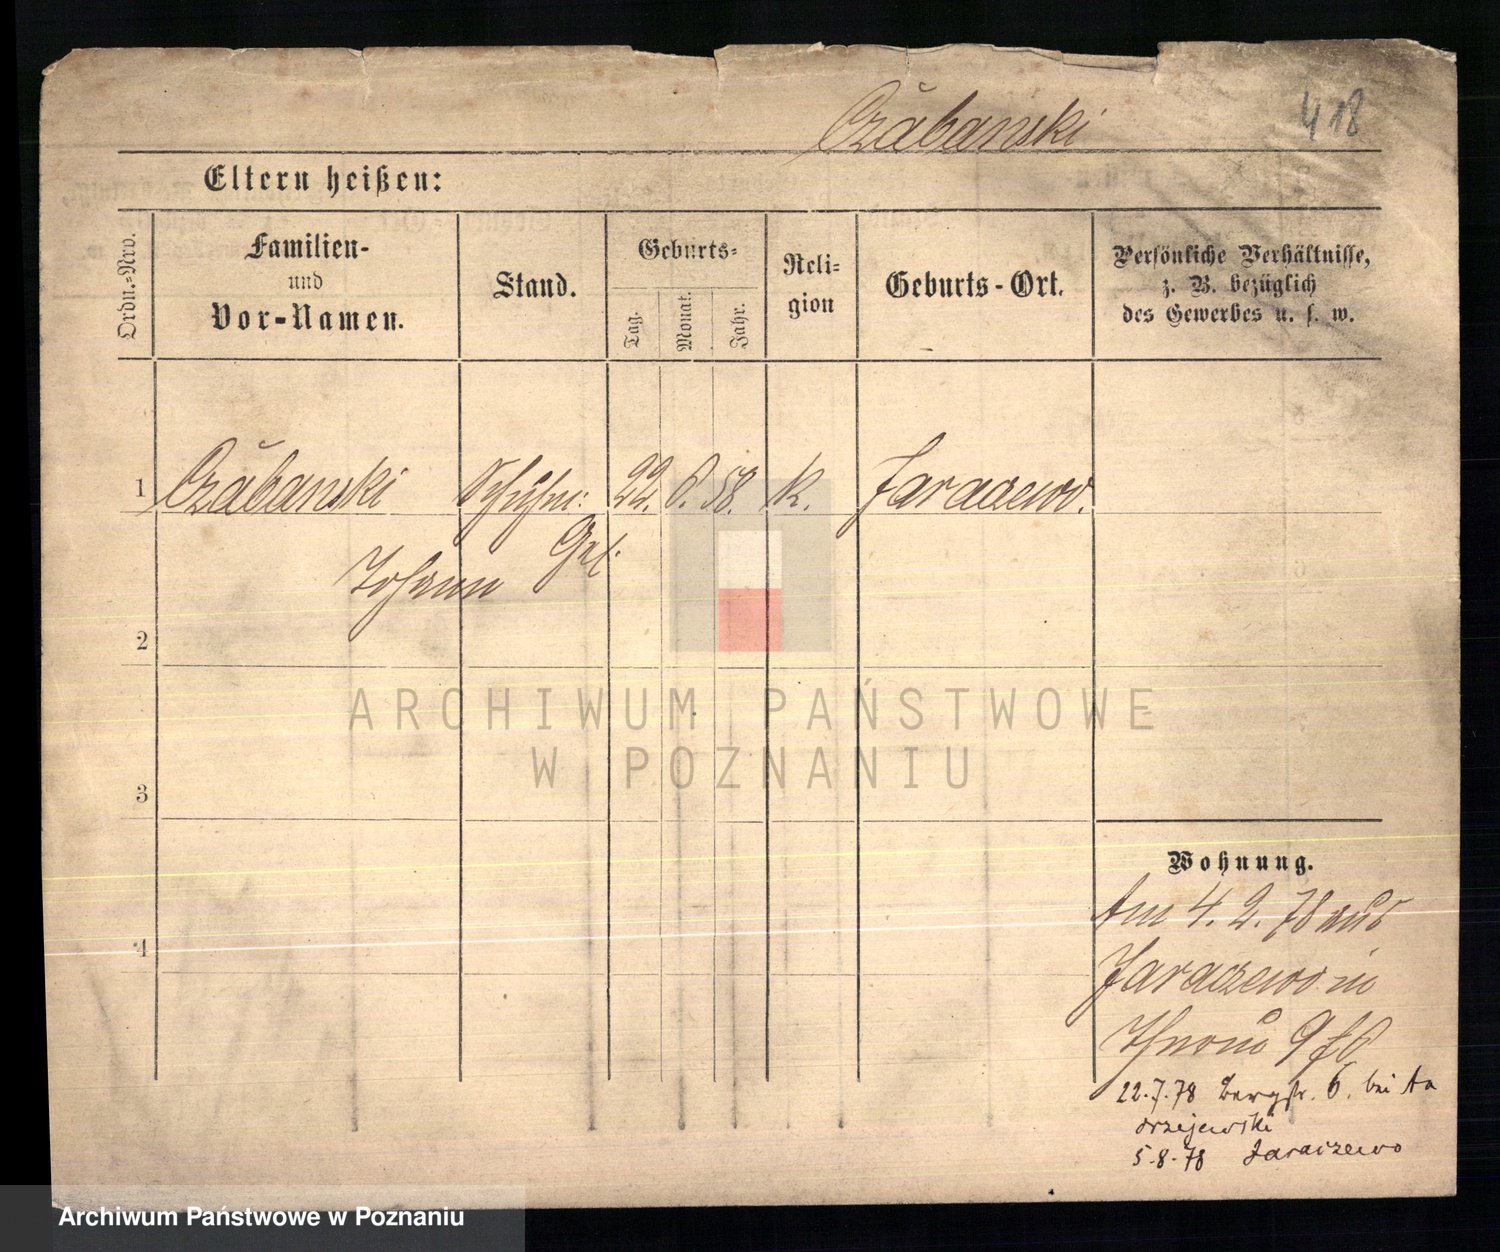 Czabanski
418
Eltern heißen:
Ordn.-Nro.
Familien-
und
Vor-Namen.
Stand.
Geburts-
Tag.
Monat.
Jahr.
Reli-
gion
Geburts-Ort.
Persönliche Verhältnisse,
z. B. bezüglich
des Gewerbes u. s. w.
1 Czabanski Schuhm: 22. 6. 58. K. Jaraczewo.
Johann Gel.
2
3
4
Wohnung.
Am 4. 2. 78 aus
Jaraczewo in
9
22.7.78 Bergstr. 6. bei An
drzejewski
5-8-78 Jaraczewo
ARCHIWUM PAŃSTWOWE
W POZNANIU
Archiwum Państwowe w Poznaniu